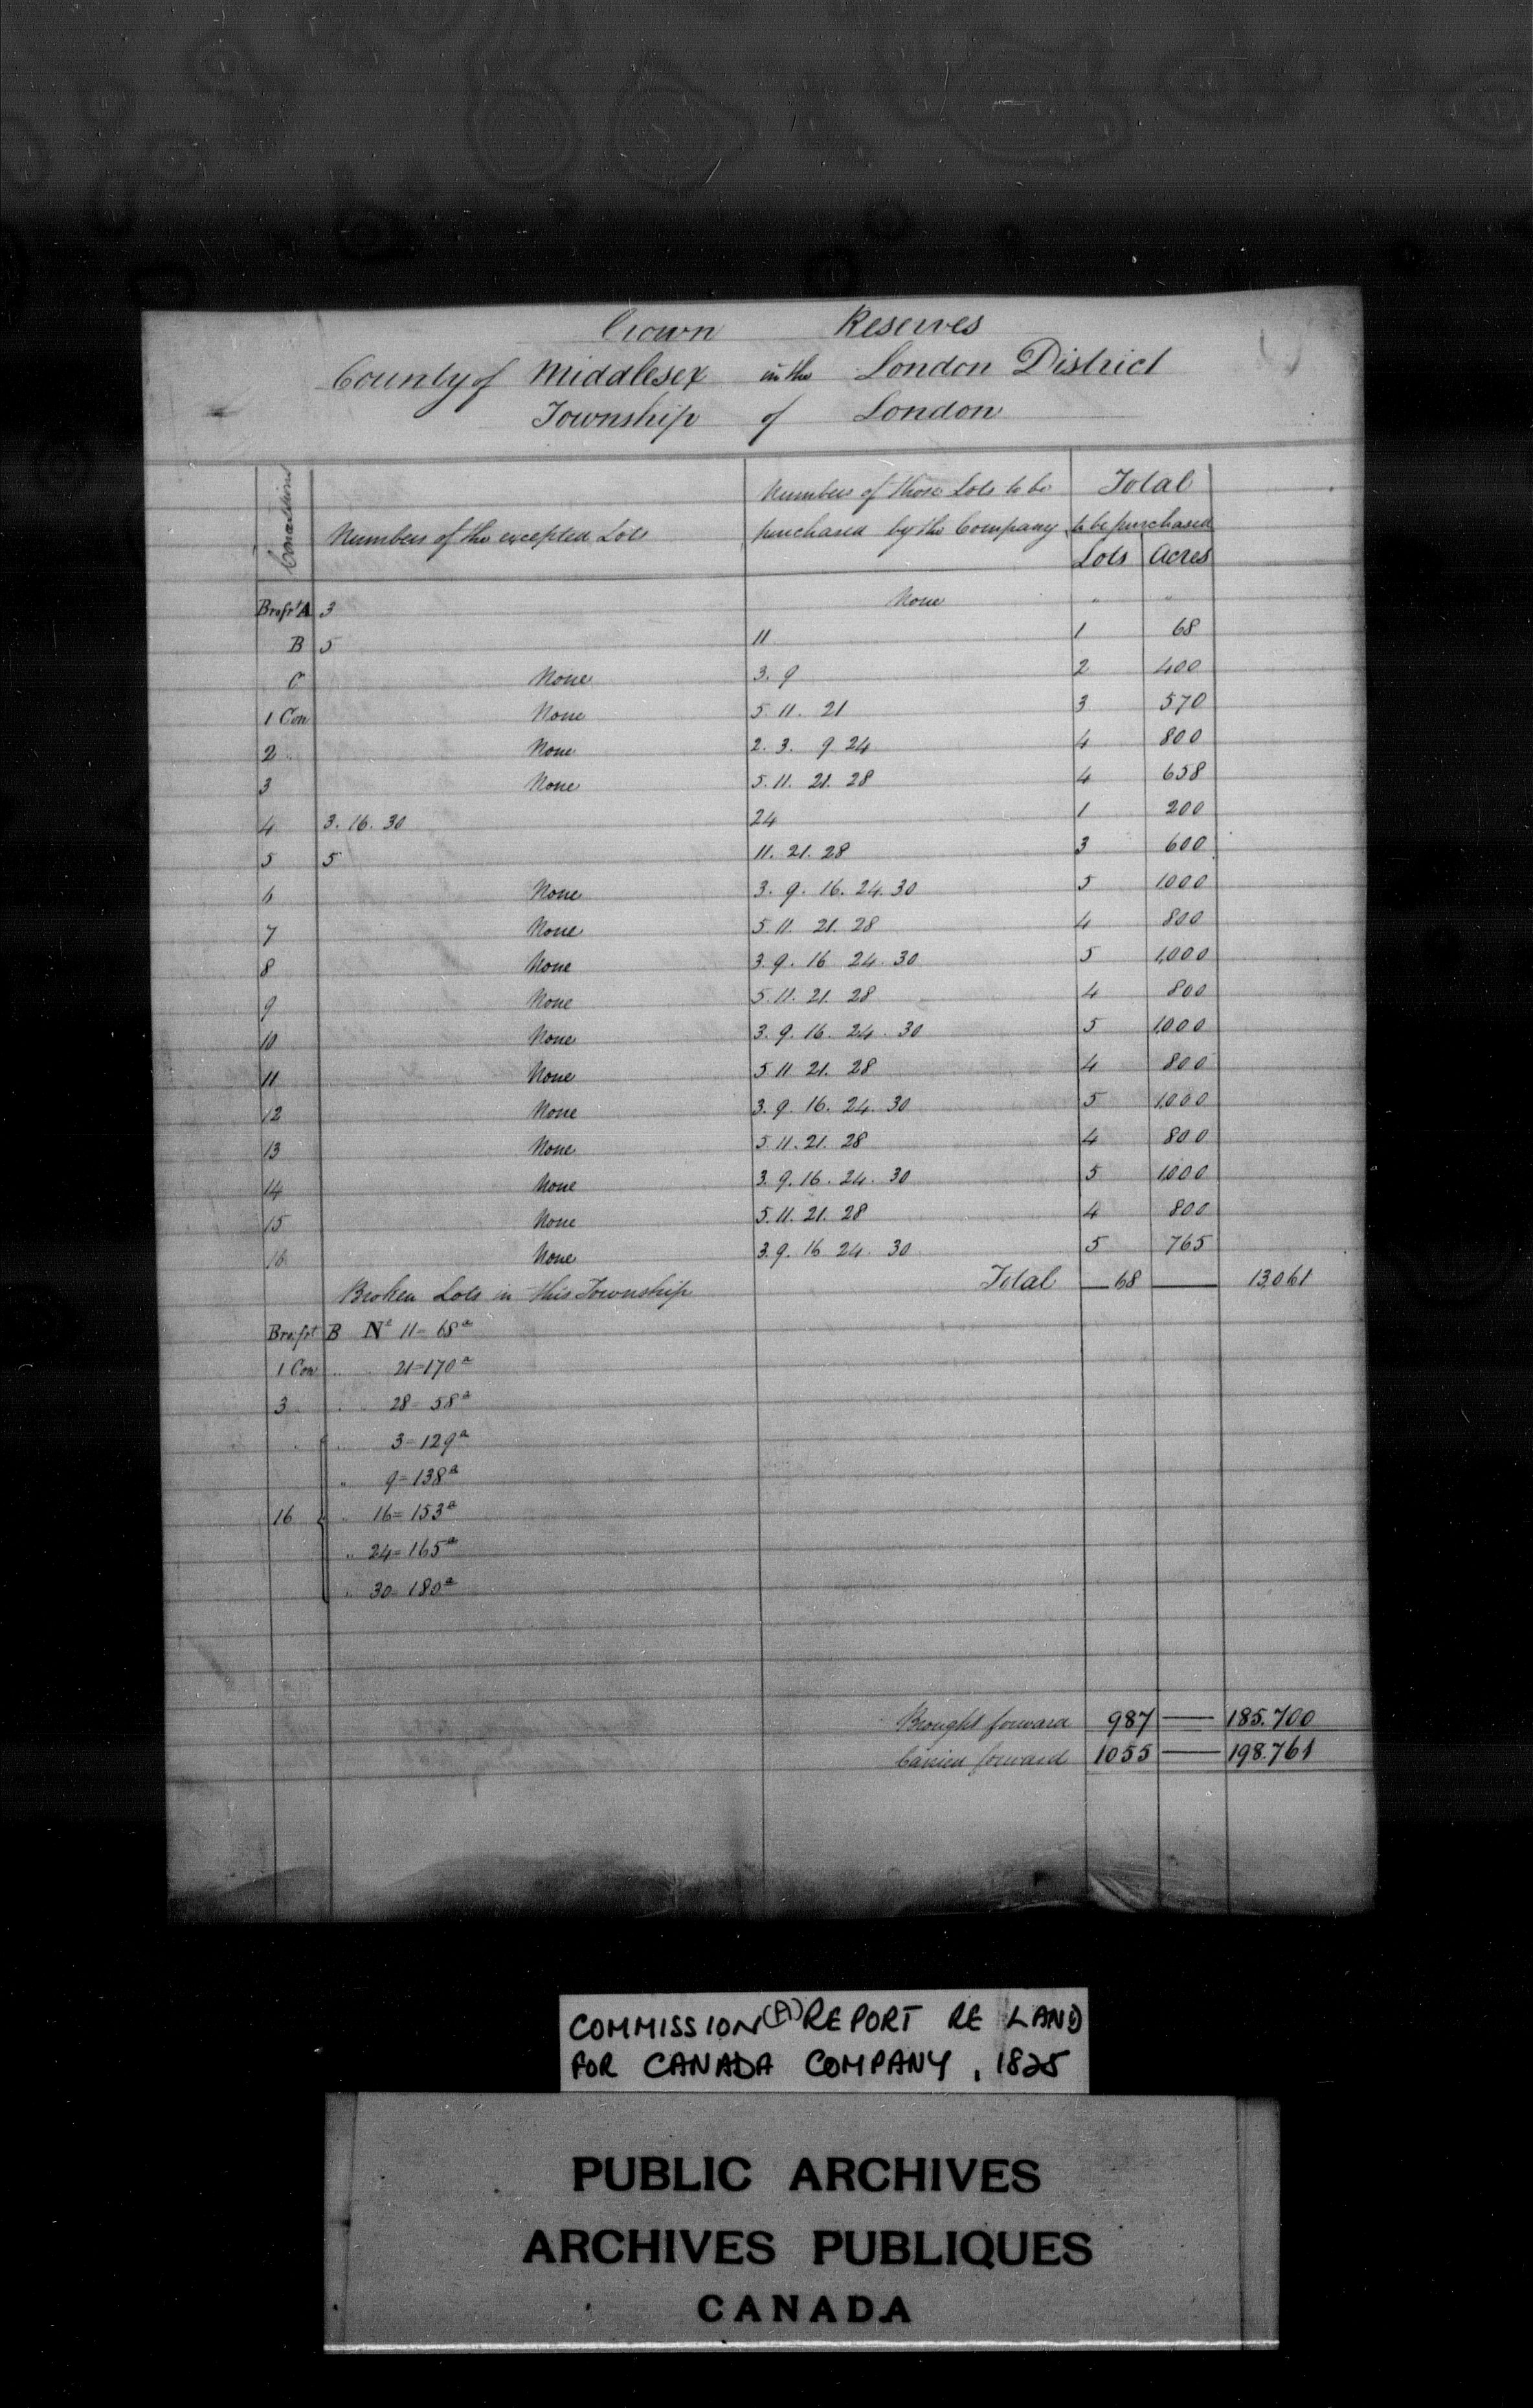 Crown Reserves
County of Middlesex in the London District
Township of London
Concessions
Numbers of the excepted Lots
Numbers of those Lots to be purchased by the Company
Total to be purchased
Lots Acres
Brofrt A 3 None " "
B 5 11 1 68
C None 3. 9 2 400
1 Con None 5. 11. 21 3 570
2 " None 2. 3. 9 24 4 800
3 None 5. 11. 21. 28 4 658
4 3. 16. 30 24 1 200
5 5 11. 21. 28 3 600
6 None 3. 9. 16. 24. 30 5 1000
7 None 5. 11. 21. 28 4 800
8 None 3. 9. 16. 24. 30 5 1,000
9 None 5. 11. 21. 28 4 800
10 None 3. 9. 16. 24. 30 5 1,000
11 None 5 11 21. 28 4 800
12 None 3. 9. 16. 24. 30 5 1,000
13 None 5 11. 21. 28 4 800
14 None 3. 9. 16. 24. 30 5 1,000
15 None 5. 11. 21. 28 4 800
16 None 3. 9. 16 24. 30 5 765
Total 68 13,061
Broken Lots in this Township
Bro.frt B No 11 = 68a
1 Con " " 21 = 170a
3 " " 28 = 58a
" 3 = 129a
" 9 = 138a
16 " 16 = 153a
" 24 = 165a
" 30 = 180a
Brought forward 987 185.700
Carried forward 1055 198.761
COMMISSION (A) REPORT RE LAND
FOR CANADA COMPANY, 1825
PUBLIC ARCHIVES
ARCHIVES PUBLIQUES
CANADA